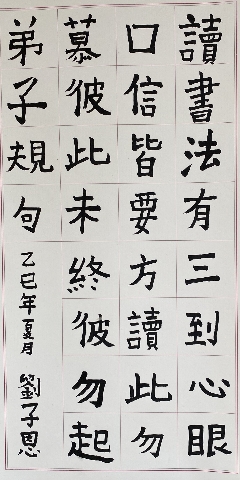 讀書法有三到心眼
口信皆要方讀此勿
慕彼此未終彼勿起
弟子規句
乙巳年夏月 劉子恩